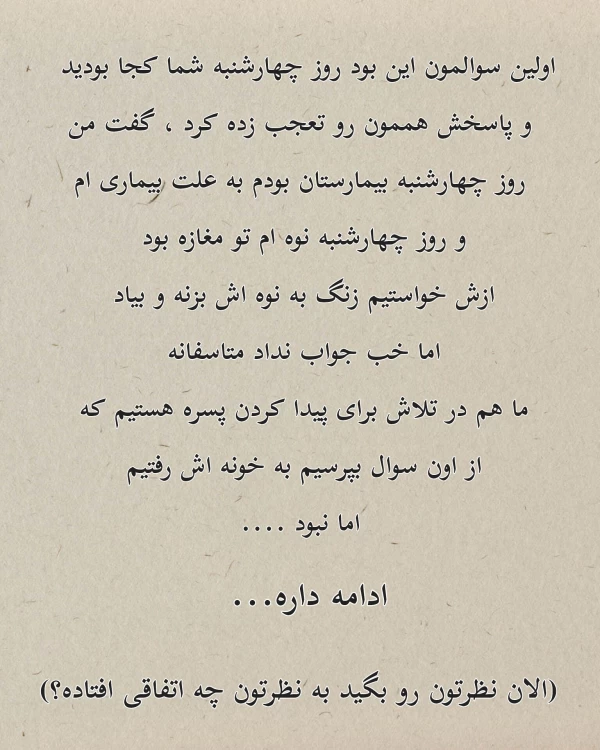 اولین سوالمون این بود روز چهارشنبه شما کجا بودید
و پاسخش هممون رو تعجب زده کرد ، گفت من
روز چهارشنبه بیمارستان بودم به علت بیماری ام
و روز چهارشنبه نوه ام تو مغازه بود
ازش خواستیم زنگ به نوه اش بزنه و بیاد
اما خب جواب نداد متاسفانه
ما هم در تلاش برای پیدا کردن پسره هستیم که
از اون سوال بپرسیم به خونه اش رفتیم
اما نبود ....
ادامه داره...
(الان نظرتون رو بگید به نظرتون چه اتفاقی افتاده؟)